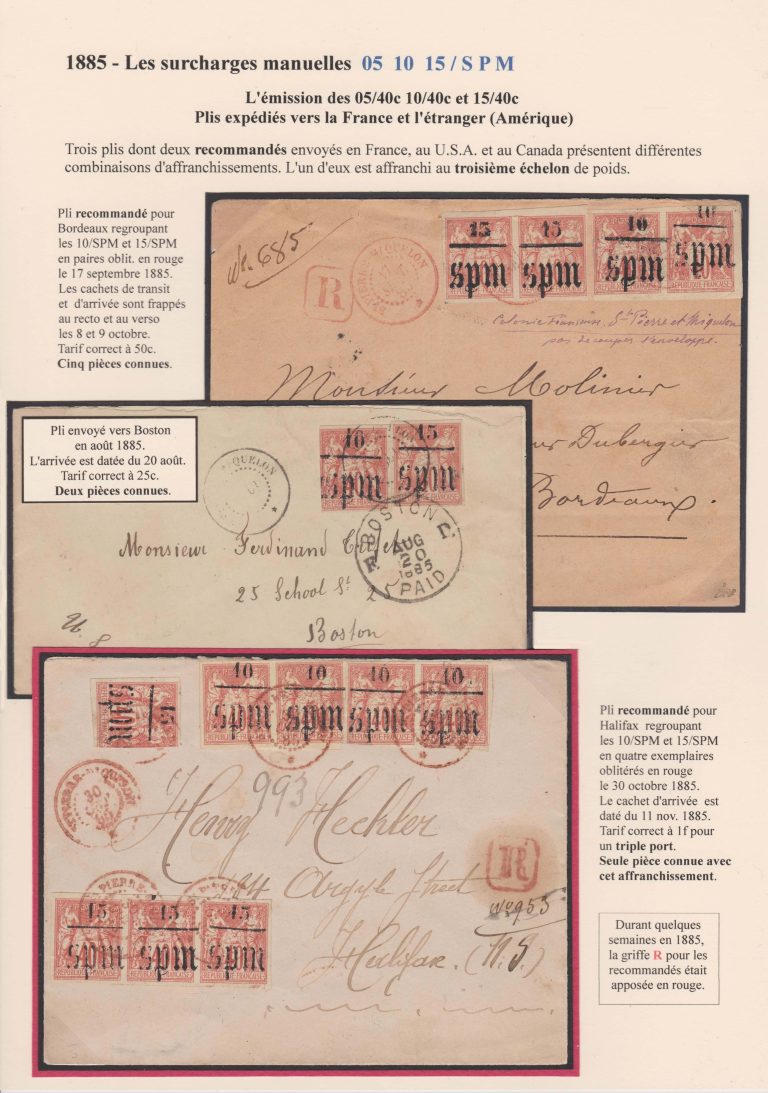 1885 - Les surcharges manuelles 05 10 15 / S P M
L'émission des 05/40c 10/40c et 15/40c
Plis expédiés vers la France et l'étranger (Amérique)
Trois plis dont deux recommandés envoyés en France, au U.S.A. et au Canada présentent différentes
combinaisons d'affranchissements. L'un d'eux est affranchi au troisième échelon de poids.
Pli recommandé pour
Bordeaux regroupant
les 10/SPM et 15/SPM
en paires oblit. en rouge
le 17 septembre 1885.
Les cachets de transit
et d'arrivée sont frappés
au recto et au verso
les 8 et 9 octobre.
Tarif correct à 50c.
Cinq pièces connues.
No. 685
R
MIQUELON
15 15 10 10
spm spm spm spm
Colonie Française. St Pierre et Miquelon
pas découper l'enveloppe.
Monsieur Molinier
Dubergier
Bordeaux.
Pli envoyé vers Boston
en août 1885.
L'arrivée est datée du 20 août.
Tarif correct à 25c.
Deux pièces connues.
QUELON
10 15
spm spm
BOSTON
AUG
20
1885
PAID
Monsieur Ferdinand
25 School St 25
Boston
10 10 10 10
spm spm spm spm
REPUBLIQUE FRANÇAISE
15
spm
30
993
Henry Hechler
Argyle Street
R
No 953
Halifax. (N.S.)
PIERRE
15 15 15
spm spm spm
REPUBLIQUE FRANÇAISE
Pli recommandé pour
Halifax regroupant
les 10/SPM et 15/SPM
en quatre exemplaires
oblitérés en rouge
le 30 octobre 1885.
Le cachet d'arrivée est
daté du 11 nov. 1885.
Tarif correct à 1f pour
un triple port.
Seule pièce connue avec
cet affranchissement.
Durant quelques
semaines en 1885,
la griffe R pour les
recommandés était
apposée en rouge.